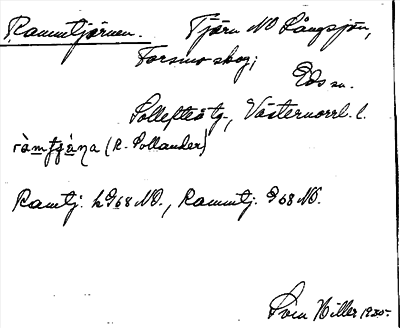 Rammtjärnen. Tjärn NO Långsjön,
Forsmo skog;
Eds sn.
Sollefteå tg., Västernorrl. l.
ràmtjä̀ɳa (R. Sollander)
Ramtj. kG68 NO., Rammtj. G68 NO.
Hiller 1930-